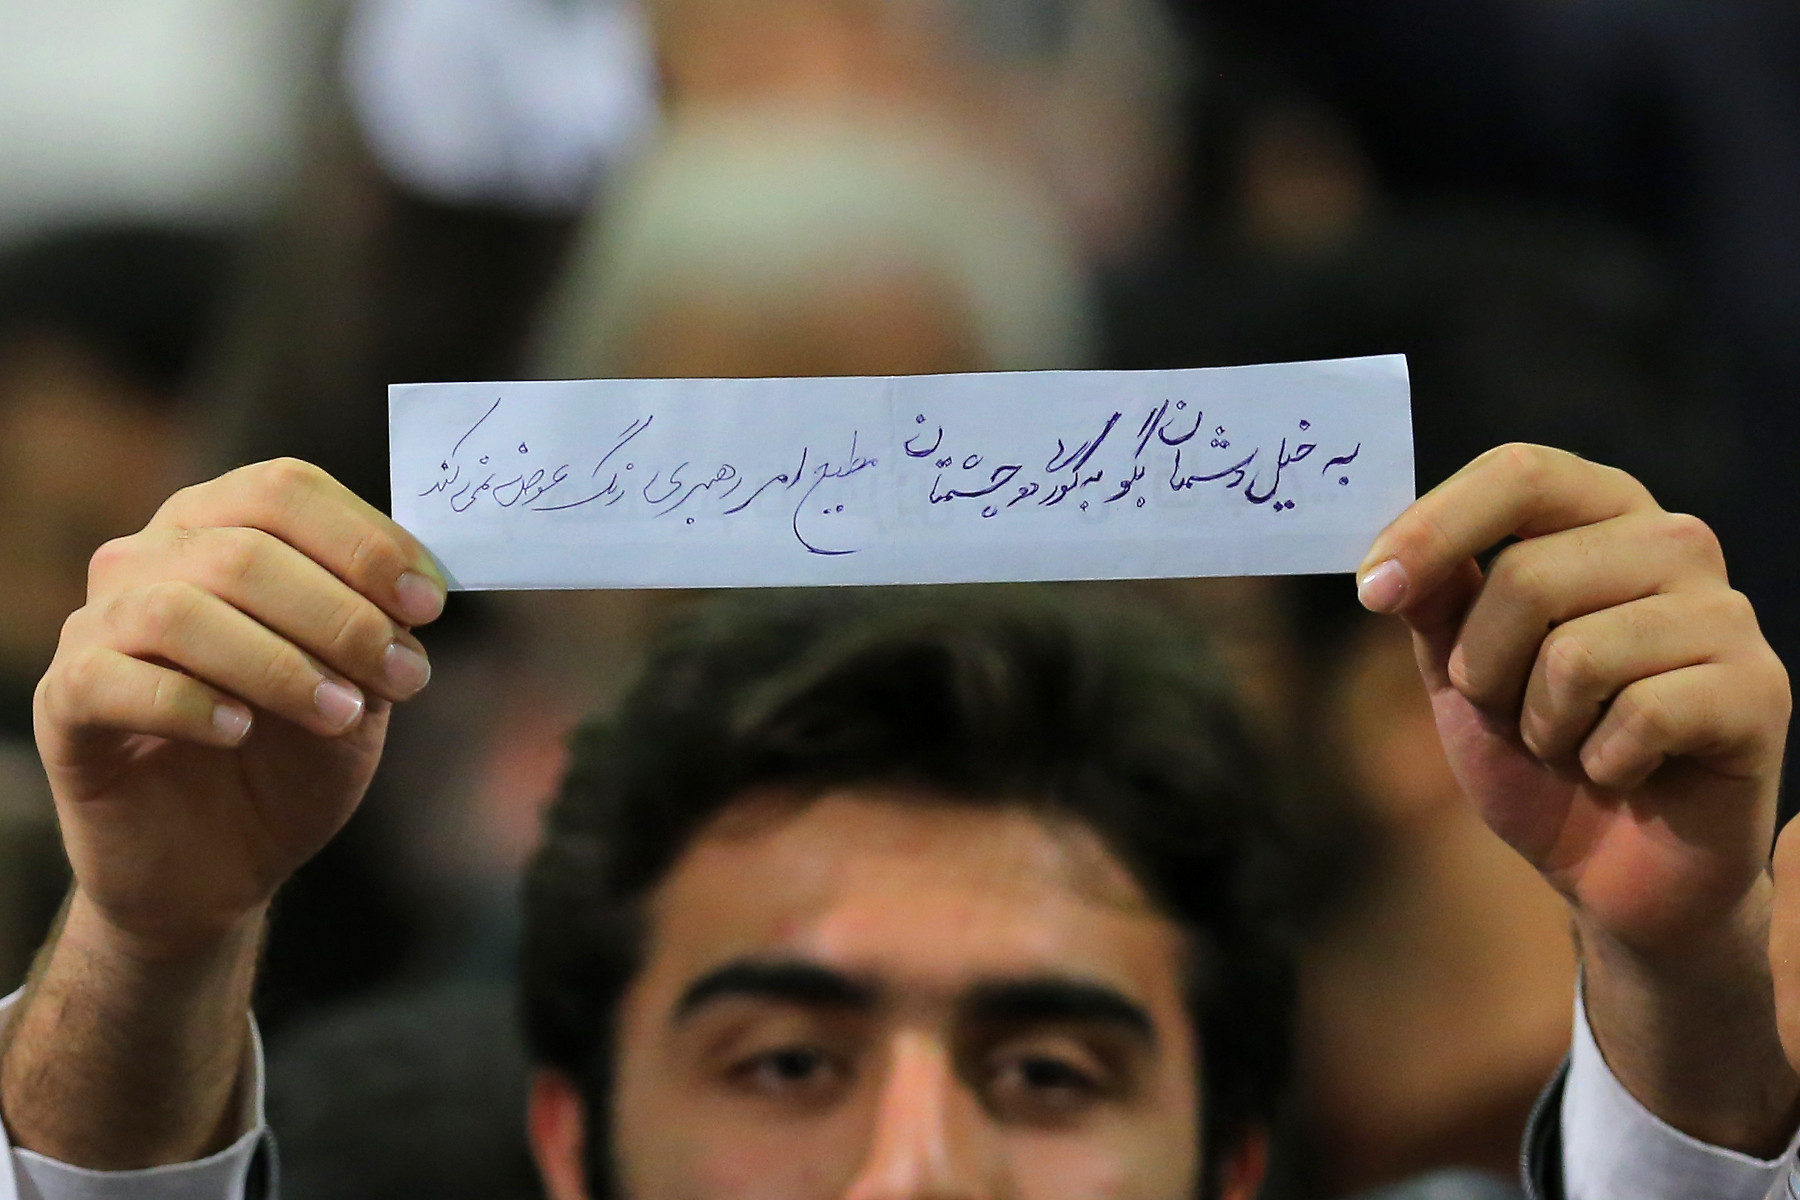 به خیل دشمنان بگو به کوری دو چشمتان مطیع امر رهبری رنگ عوض نمی‌کند